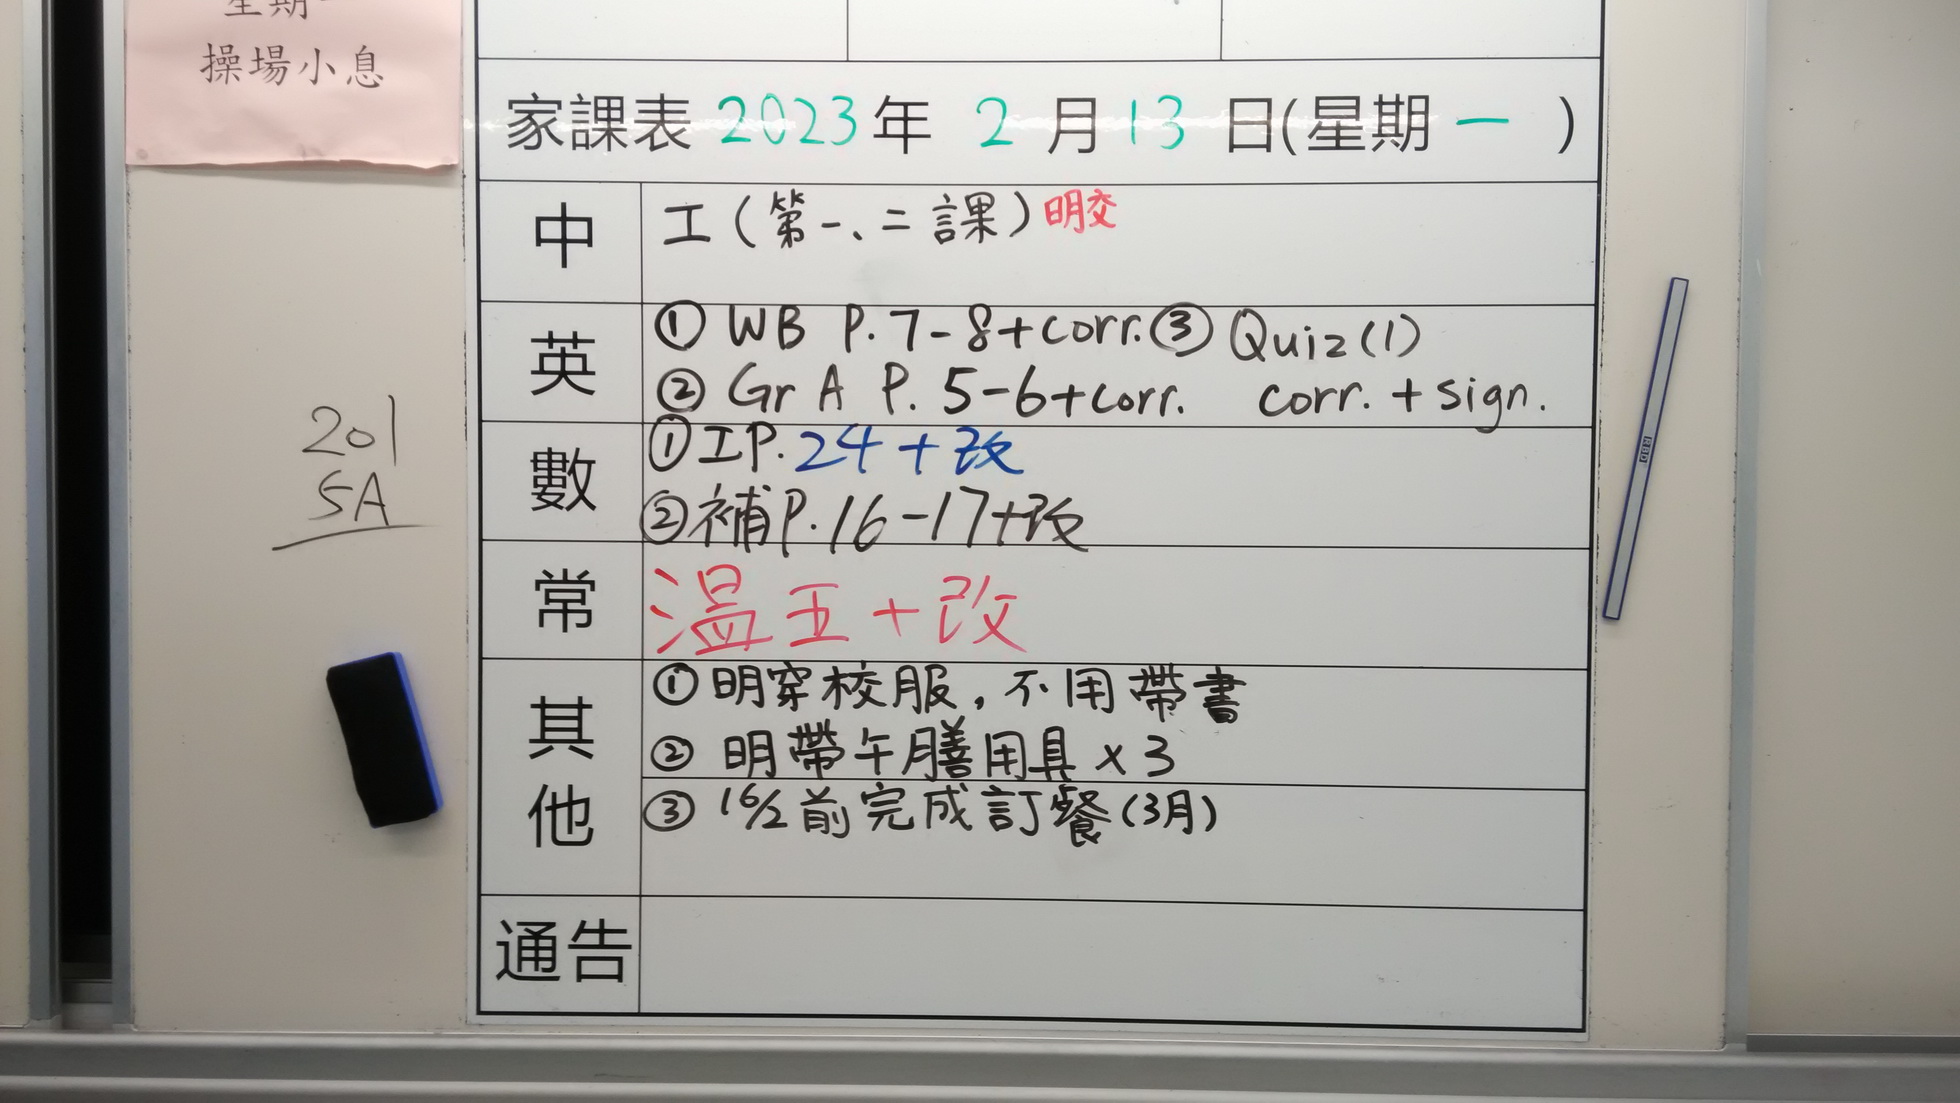 星期一
操場小息
家課表 2023年 2月13日(星期一)
中
工(第一、二課)明交
英
① WB P.7-8+corr. ③ Quiz(1)
② Gr A P.5-6+corr. corr.+sign.
數
①工P.24+改
②補P.16-17+改
常
溫五+改
其他
①明穿校服，不用帶書
② 明帶午膳用具 x3
③ 16/2前完成訂餐(3月)
通告
201
5A